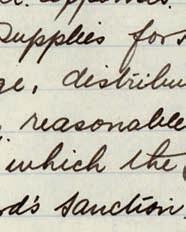 Supplies for
ge, distribu
reasonable
which the
rd's sanction